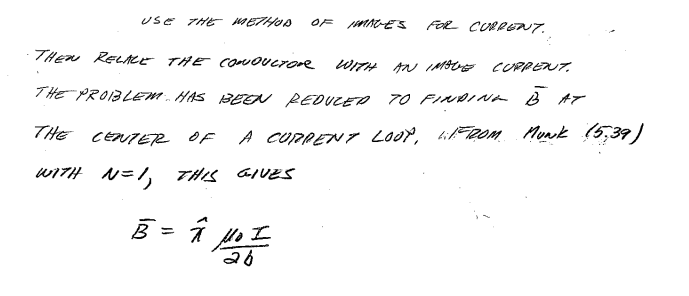 USE THE METHOD OF IMAGES FOR CURRENT.
THEN RELACE THE CONDUCTOR WITH AN IMAGE CURRENT.
THE PROBLEM HAS BEEN REDUCED TO FINDING B̄ AT
THE CENTER OF A CURRENT LOOP, FROM Munk (5.39)
WITH N=1, THIS GIVES
B̄ = x̂ μ₀ I / 2b